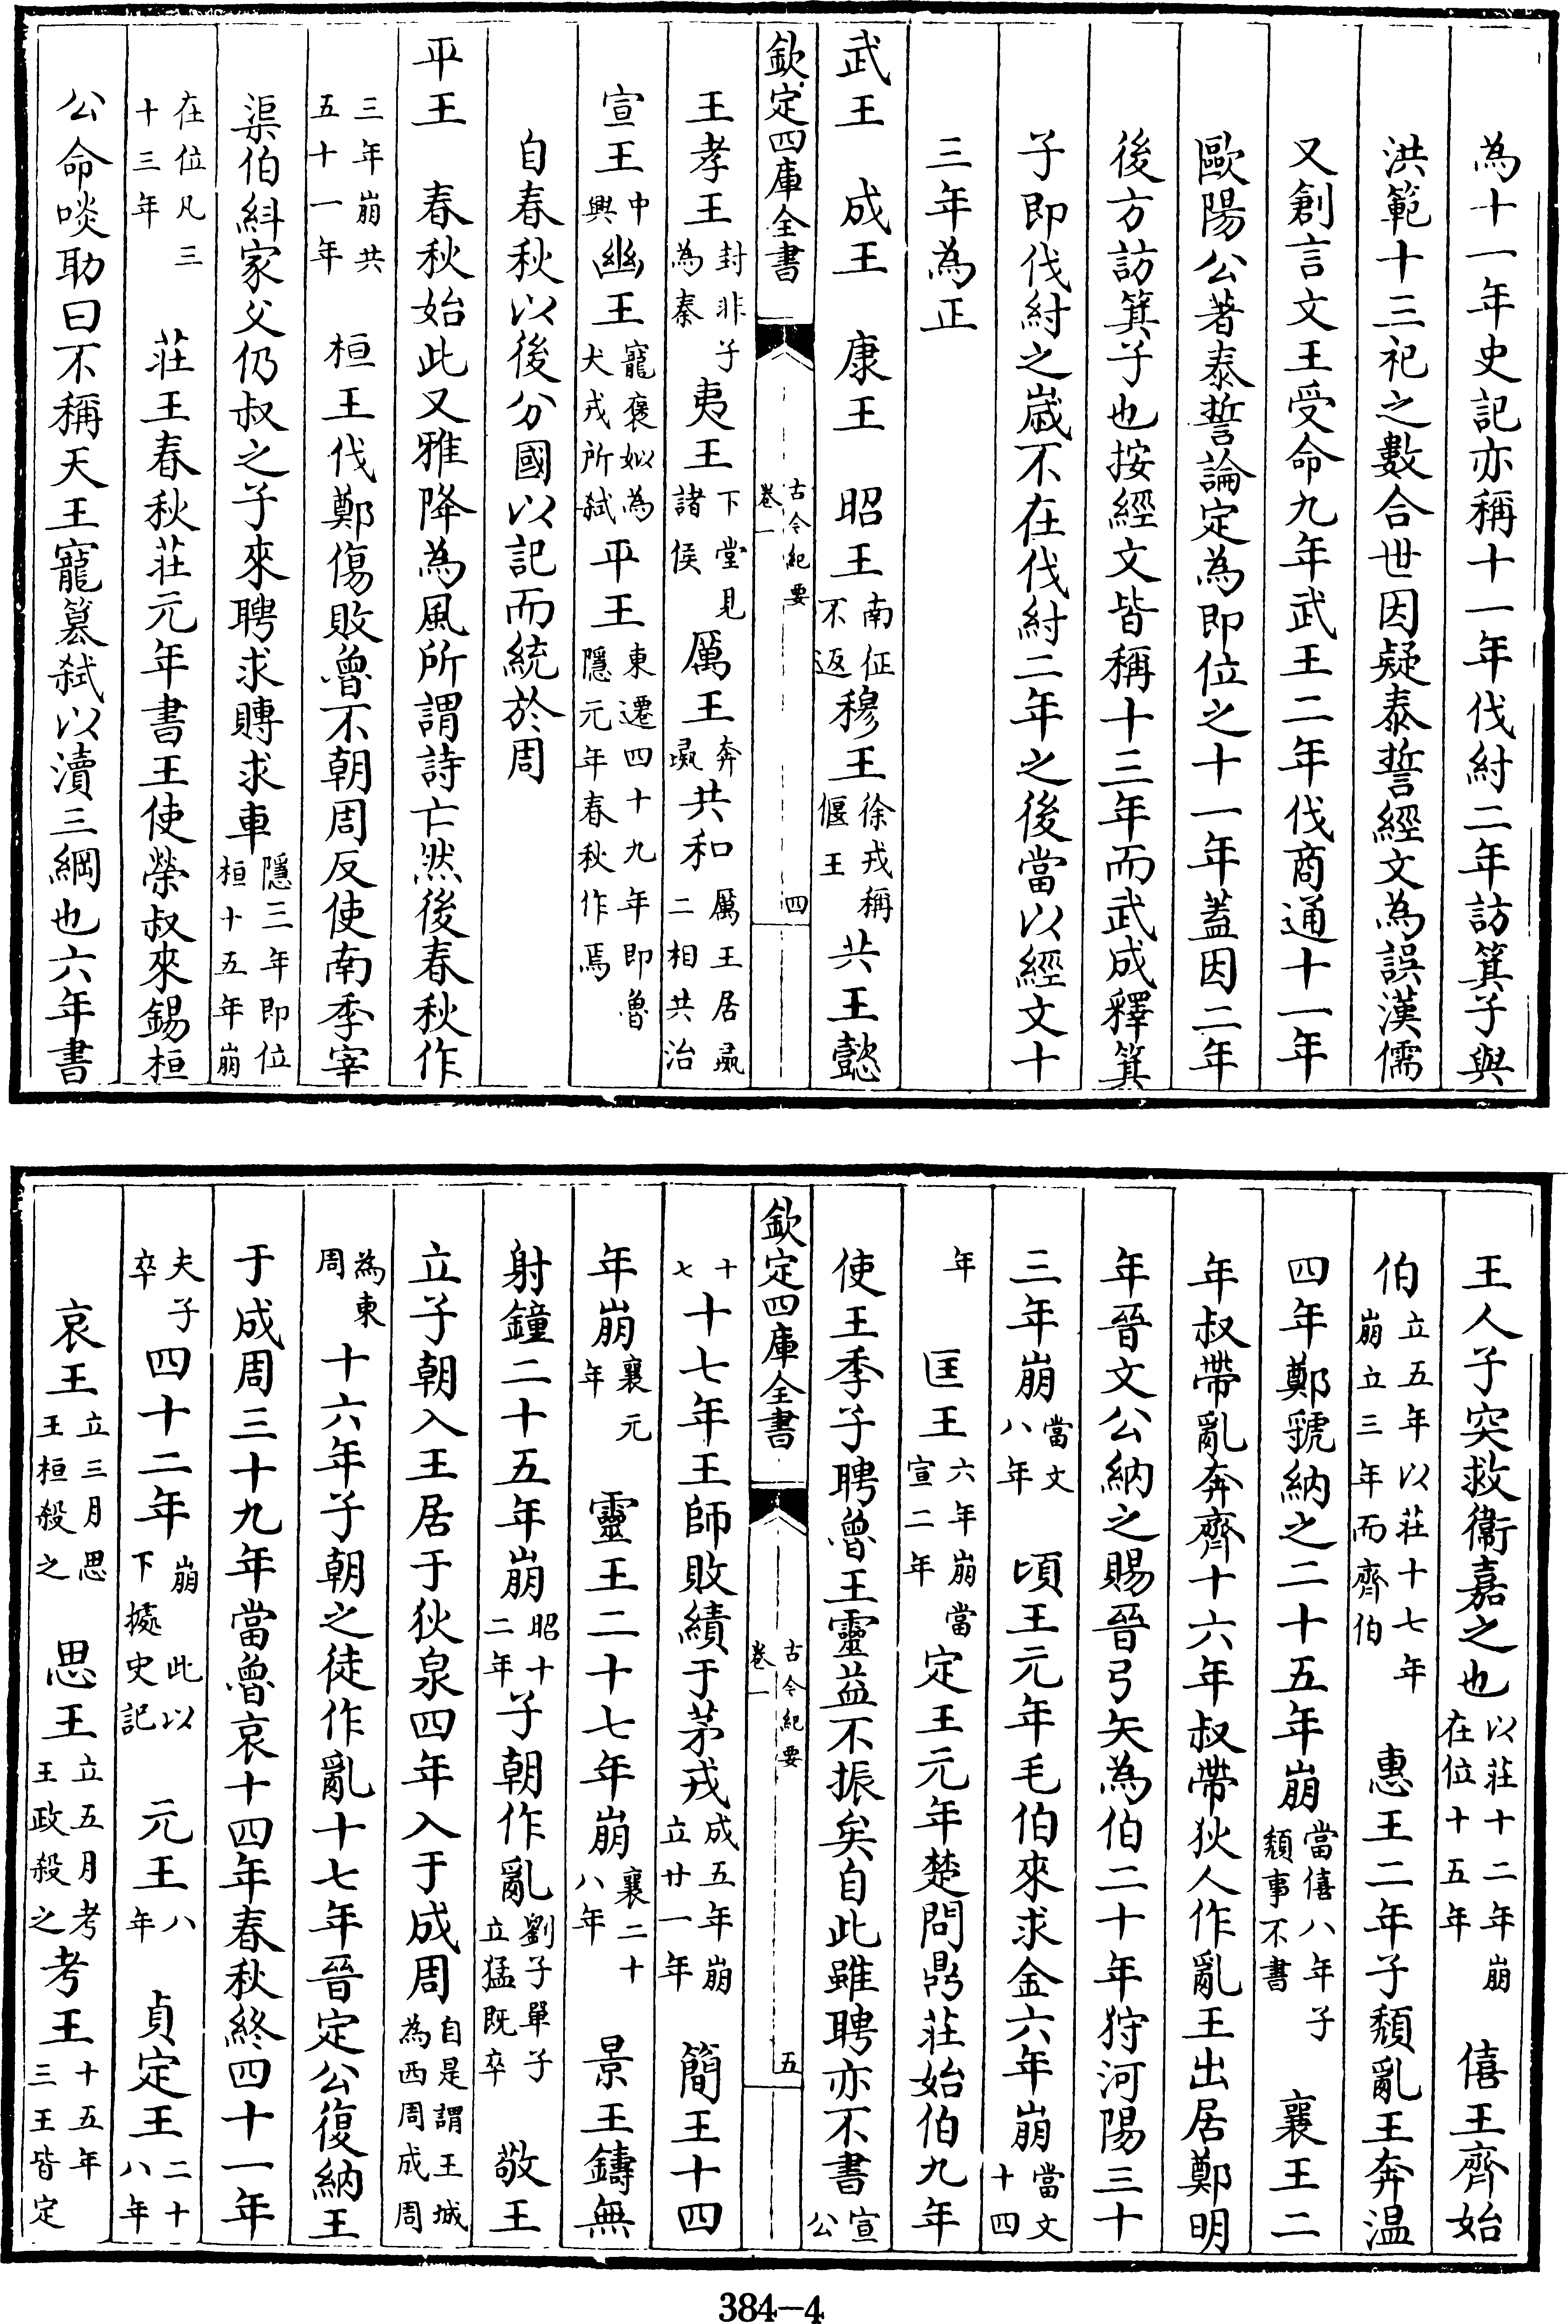 為十一年史記亦稱十一年伐紂二年訪箕子與
洪範十三祀之數合世因疑泰誓經文為誤漢儒
又創言文王受命九年武王二年伐商通十一年
歐陽公著泰誓論定為即位之十一年蓋因二年
後方訪箕子也按經文皆稱十三年而武成釋箕
子即伐紂之嵗不在伐紂二年之後當以經文十
三年為正
武王　成王　康王　昭王南征不返穆王徐戎稱偃王共王懿
欽定四庫全書　古今紀要　卷一　四
王孝王封非子為秦夷王下堂見諸侯厲王奔彘共和厲王居彘二相共治
宣王中興幽王寵褒姒為犬戎所弑平王東遷四十九年即魯隱元年春秋作焉
自春秋以後分國以記而統於周
平王　春秋始此又雅降為風所謂詩亡然後春秋作
三年崩共五十一年　桓王伐鄭傷敗魯不朝周反使南季宰
渠伯糾家父仍叔之子來聘求賻求車隱三年即位桓十五年崩
在位凡三十三年　莊王春秋莊元年書王使榮叔來錫桓
公命啖助曰不稱天王寵簒弑以瀆三綱也六年書
王人子突救衛嘉之也以莊十二年崩在位十五年　僖王齊始
伯立五年以莊十七年崩立三年而齊伯　惠王二年子頹亂王奔温
四年鄭虢納之二十五年崩當僖八年子頹事不書　襄王二
年叔帶亂奔齊十六年叔帶狄人作亂王出居鄭明
年晉文公納之賜晉弓矢為伯二十年狩河陽三十
三年崩當文八年　頃王元年毛伯來求金六年崩當文十四
年　匡王六年崩當宣二年　定王元年楚問鼎莊始伯九年
使王季子聘魯王靈益不振矣自此雖聘亦不書宣公
欽定四庫全書　古今紀要　卷一　五
十七十七年王師敗績于茅戎成五年崩立廿一年　簡王十四
年崩襄元年　靈王二十七年崩襄二十八年　景王鑄無
射鐘二十五年崩昭十二年子朝作亂劉子單子立猛既卒　敬王
立子朝入王居于狄泉四年入于成周自是謂王城為西周成周
為東周十六年子朝之徒作亂十七年晉定公復納王
于成周三十九年當魯哀十四年春秋終四十一年
夫子卒四十二年崩　此以下據史記　元王八年　貞定王二十八年
哀王立三月思王桓殺之　思王立五月考王政殺之考王十五年三王皆定
384-4